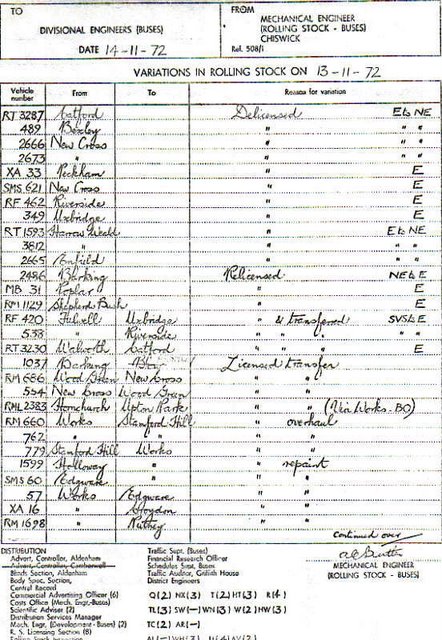 TO
DIVISIONAL ENGINEERS (BUSES)
DATE 14-11-72
FROM
MECHANICAL ENGINEER
(ROLLING STOCK - BUSES)
CHISWICK
Ref. 508/1
VARIATIONS IN ROLLING STOCK ON 13-11-72
Vehicle number From To Reason for variation
RT 3287 Catford Delicensed E to NE
489 Bexley " " "
2666 New Cross " " "
2673 " " " "
XA 33 Peckham " E
SMS 621 New Cross " E
RF 462 Riverside " E
349 Uxbridge " E
RT 1593 Harrow Weald " E to NE
3812 " " " "
2665 Enfield " " "
2486 Barking Relicensed NE to E
MB 31 Poplar " E
RM 1129 Shepherd Bush " E
RF 420 Fulwell Uxbridge " & transferred SVS to E
538 " Riverside " " " " "
RT 3230 Walworth Catford " " " E
1037 Barking Licensed transfer
RM 686 Wood Green New Cross " "
554 New Cross Wood Green " "
RML 2383 Stonchurch Upton Park " " (Via Works. BO)
RM 660 Works Stamford Hill " overhaul
762 " " " "
779 Stamford Hill Works " "
1599 Holloway " " repaint
SMS 60 Edgware " " "
57 Works Edgware " "
XA 16 " Croydon " "
RM 1698 " Putney " "
continued over
MECHANICAL ENGINEER
(ROLLING STOCK - BUSES)
DISTRIBUTION
Advert. Controller, Aldenham
Advert. Controller, Camberwell
Blinds Section, Aldenham
Body Spec. Section,
Central Record
Commercial Advertising Officer (6)
Costs Office (Mech. Engr.-Buses)
Scientific Adviser (2)
Distribution Services Manager
Mech. Engr. (Development - Buses) (2)
R. S. Licensing Section (8)
Rolling Stock Inspection
Traffic Supt. (Buses)
Financial Research Officer
Schedules Supt. Buses
Traffic Auditor, Griffith House
District Engineers
Q(2) NX(3) T(2) HT(3) R(4)
TL(3) SW(-) WN(3) W(2) HW(3)
TC(2) AR(-)